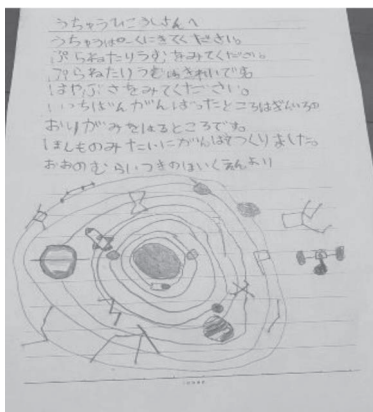 うちゅうひこうしさんへ
うちゅうぱーくにきてください。
ぷらねたりうむをみてください。
ぷらねたりうむはきれいです
はやぶさをみてください。
いちばんがんばったところはぎんいろの
おりがみをはるところです。
ほんものみたいにがんばてつくりました。
おおのむらいつきのほいくえんより